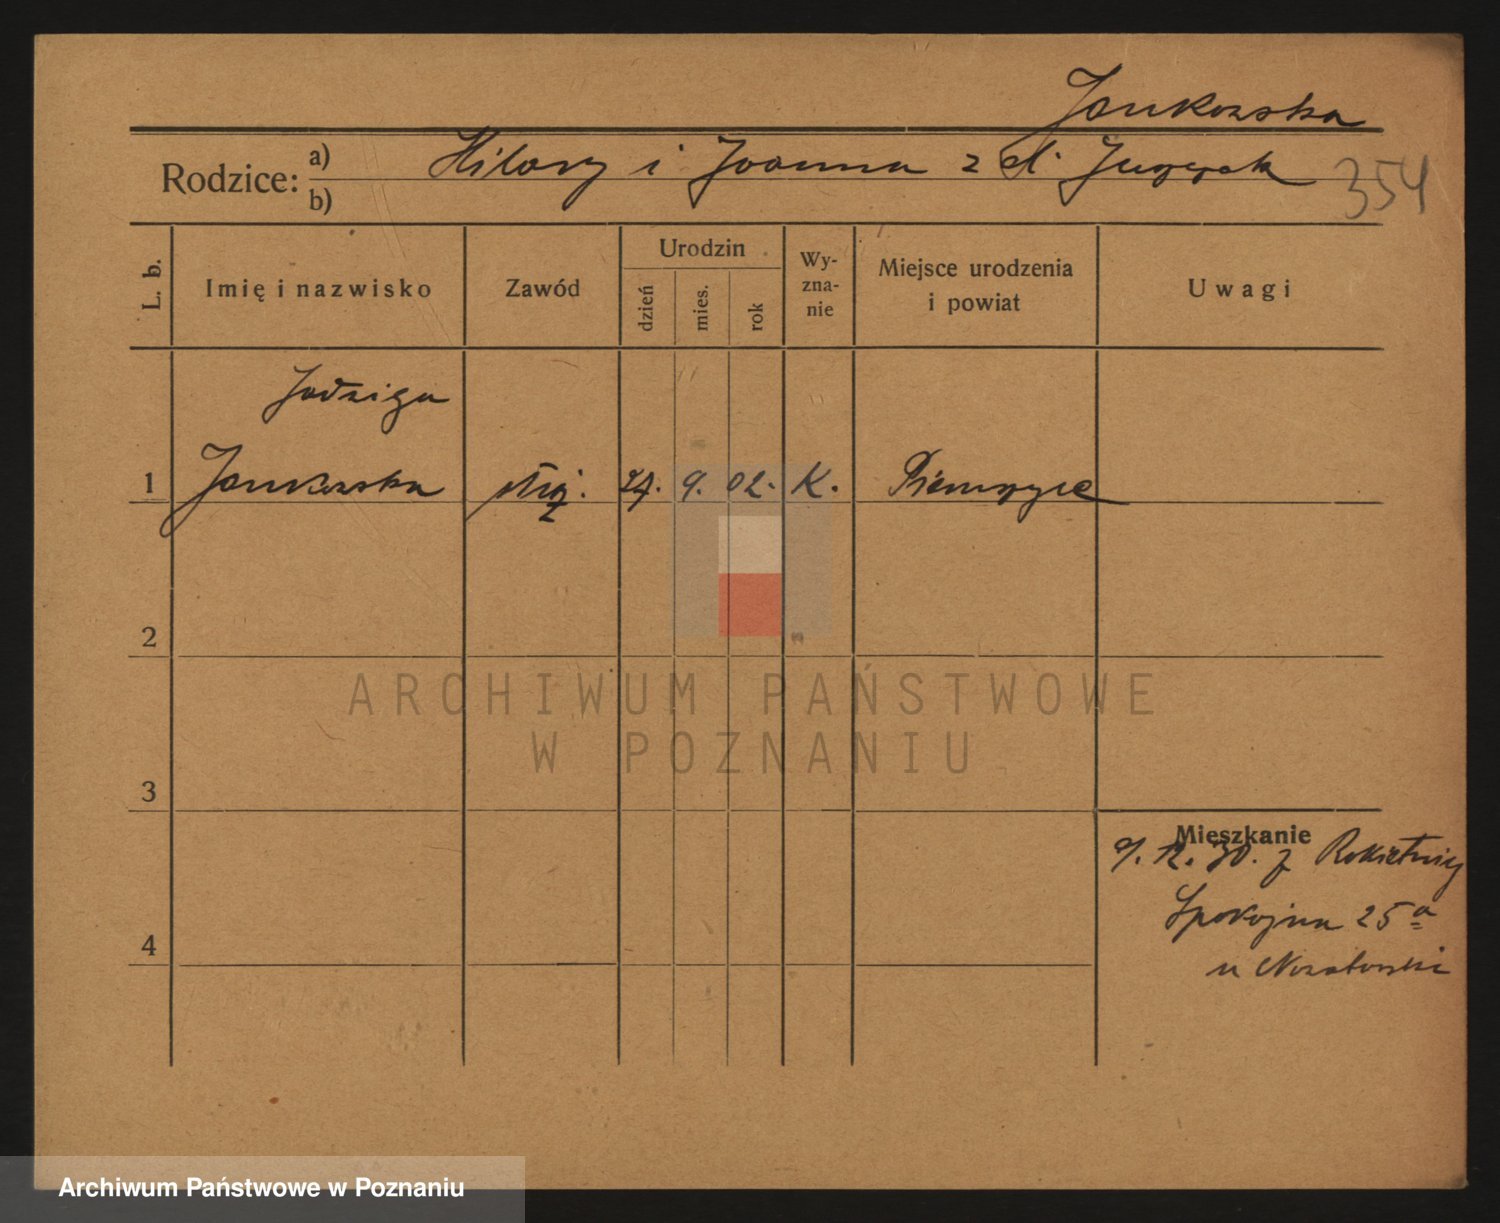 Jankowska
Rodzice: a) Hilary i Joanna z d.
b)
354
L. b.
Imię i nazwisko
Zawód
Urodzin
dzień
mies.
rok
Wy-
zna-
nie
Miejsce urodzenia
i powiat
Uwagi
Jadwiga
1 Jankowska 9. 02. K.
2
3
4
Mieszkanie
12. 30. z Rokietnicy
Spokojna 25a
u
ARCHIWUM PAŃSTWOWE
W POZNANIU
Archiwum Państwowe w Poznaniu